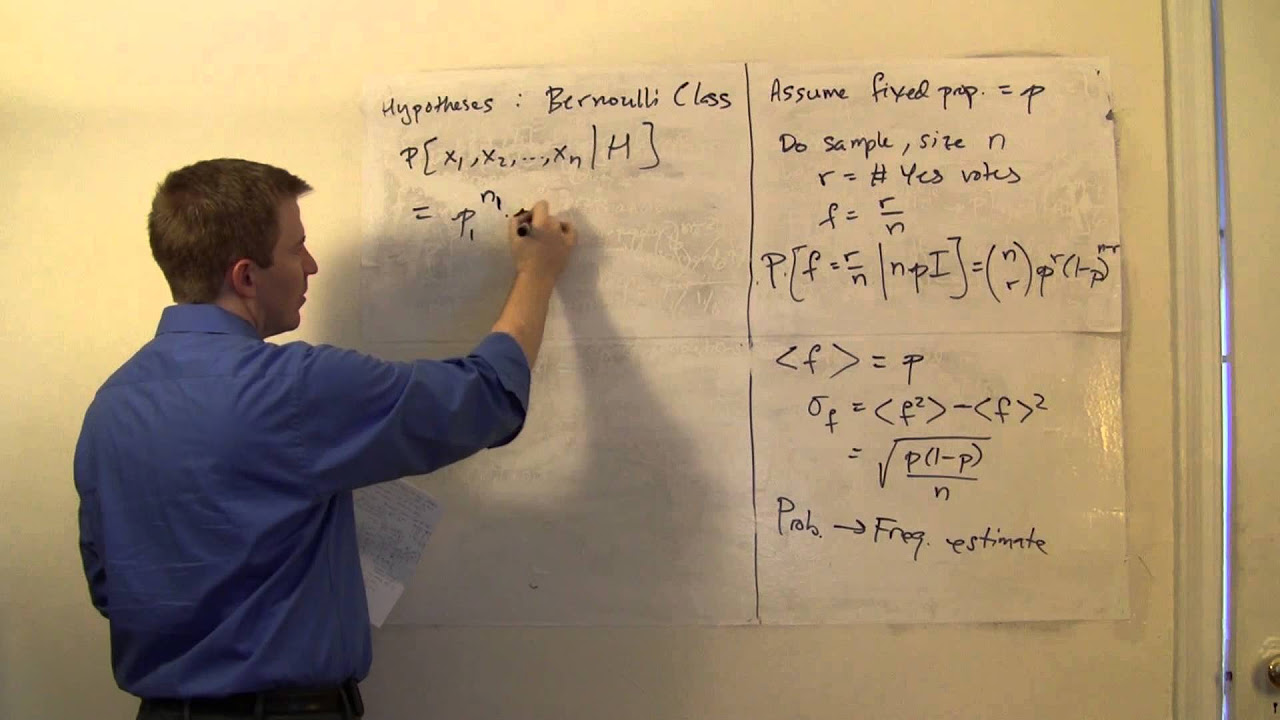 Hypotheses : Bernoulli Class
P[x₁,x₂,...,xₙ|H]
= p₁^n₁ .
Assume fixed prop. = p
Do sample, size n
r = # Yes votes
f = r/n
P.[f = r/n | npI] = (n r) p^r (1-p)^n-r
<f> = p
σ_f = <f²> - <f>²
= √(p(1-p)/n)
Prob. → Freq. estimate